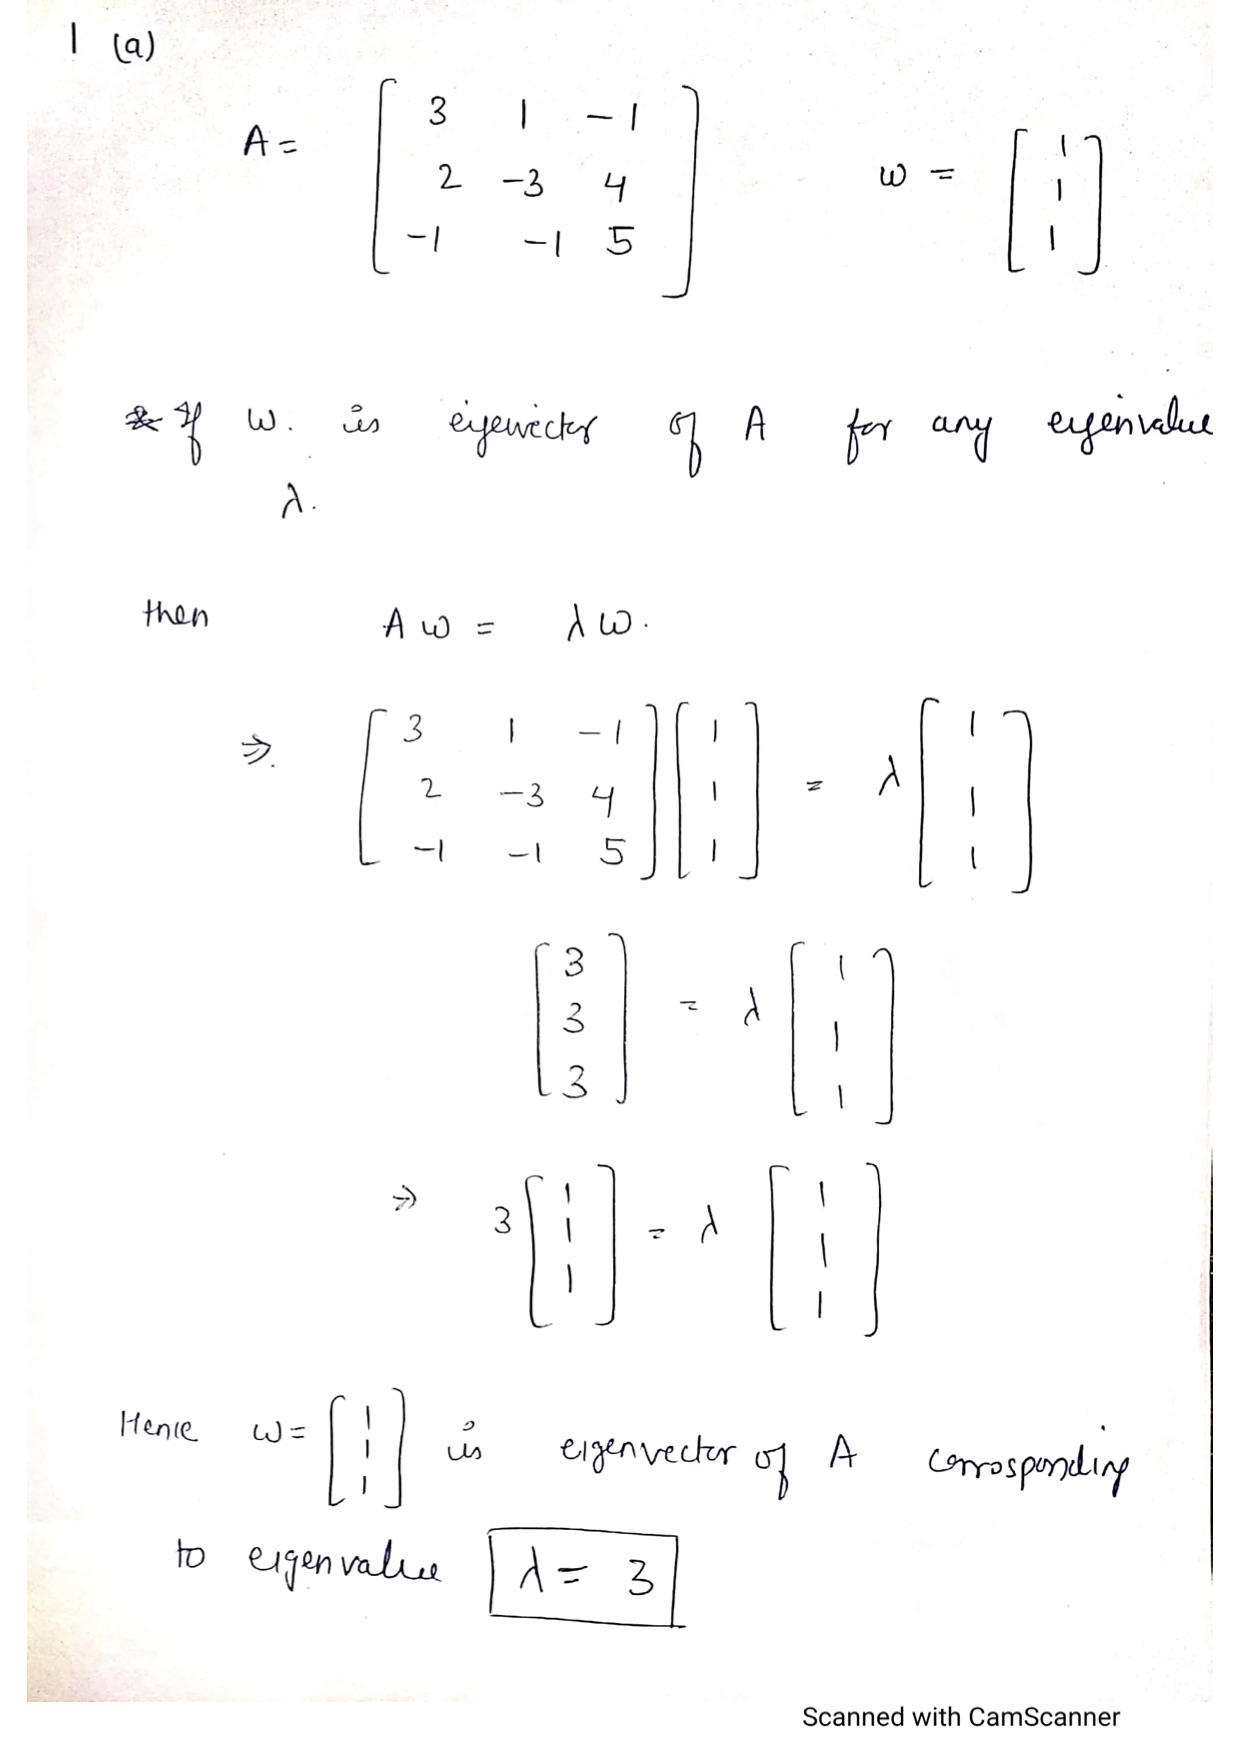 1 (a)
A = [ 3 1 -1
2 -3 4
-1 -1 5 ] w = [ 1
1
1 ]
If w. is eigenvector of A for any eigenvalue
λ.
then A w = λ w.
⇒. [ 3 1 -1
2 -3 4
-1 -1 5 ] [ 1
1
1 ] = λ [ 1
1
1 ]
[ 3
3
3 ] = λ [ 1
1
1 ]
⇒ 3 [ 1
1
1 ] = λ [ 1
1
1 ]
Hence w = [ 1
1
1 ] is eigenvector of A corrosponding
to eigenvalue λ = 3
Scanned with CamScanner